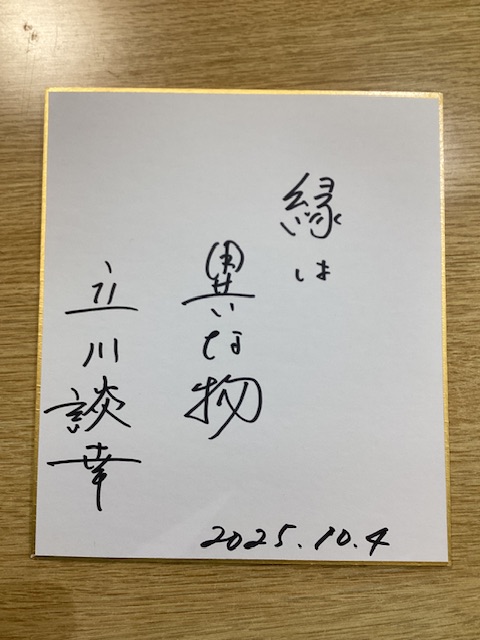 縁は
異な物
立川談幸
2025.10.4